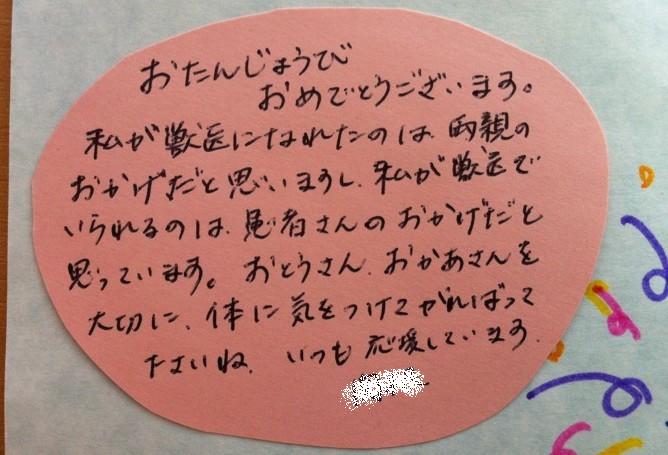 おたんじょうび
おめでとうございます。
私が獣医になれたのは、両親の
おかげだと思いますし、私が獣医で
いられるのは、患者さんのおかげだと
思っています。おとうさん、おかあさんを
大切に、体に気をつけてがんばって
下さいね。いつも応援しています。